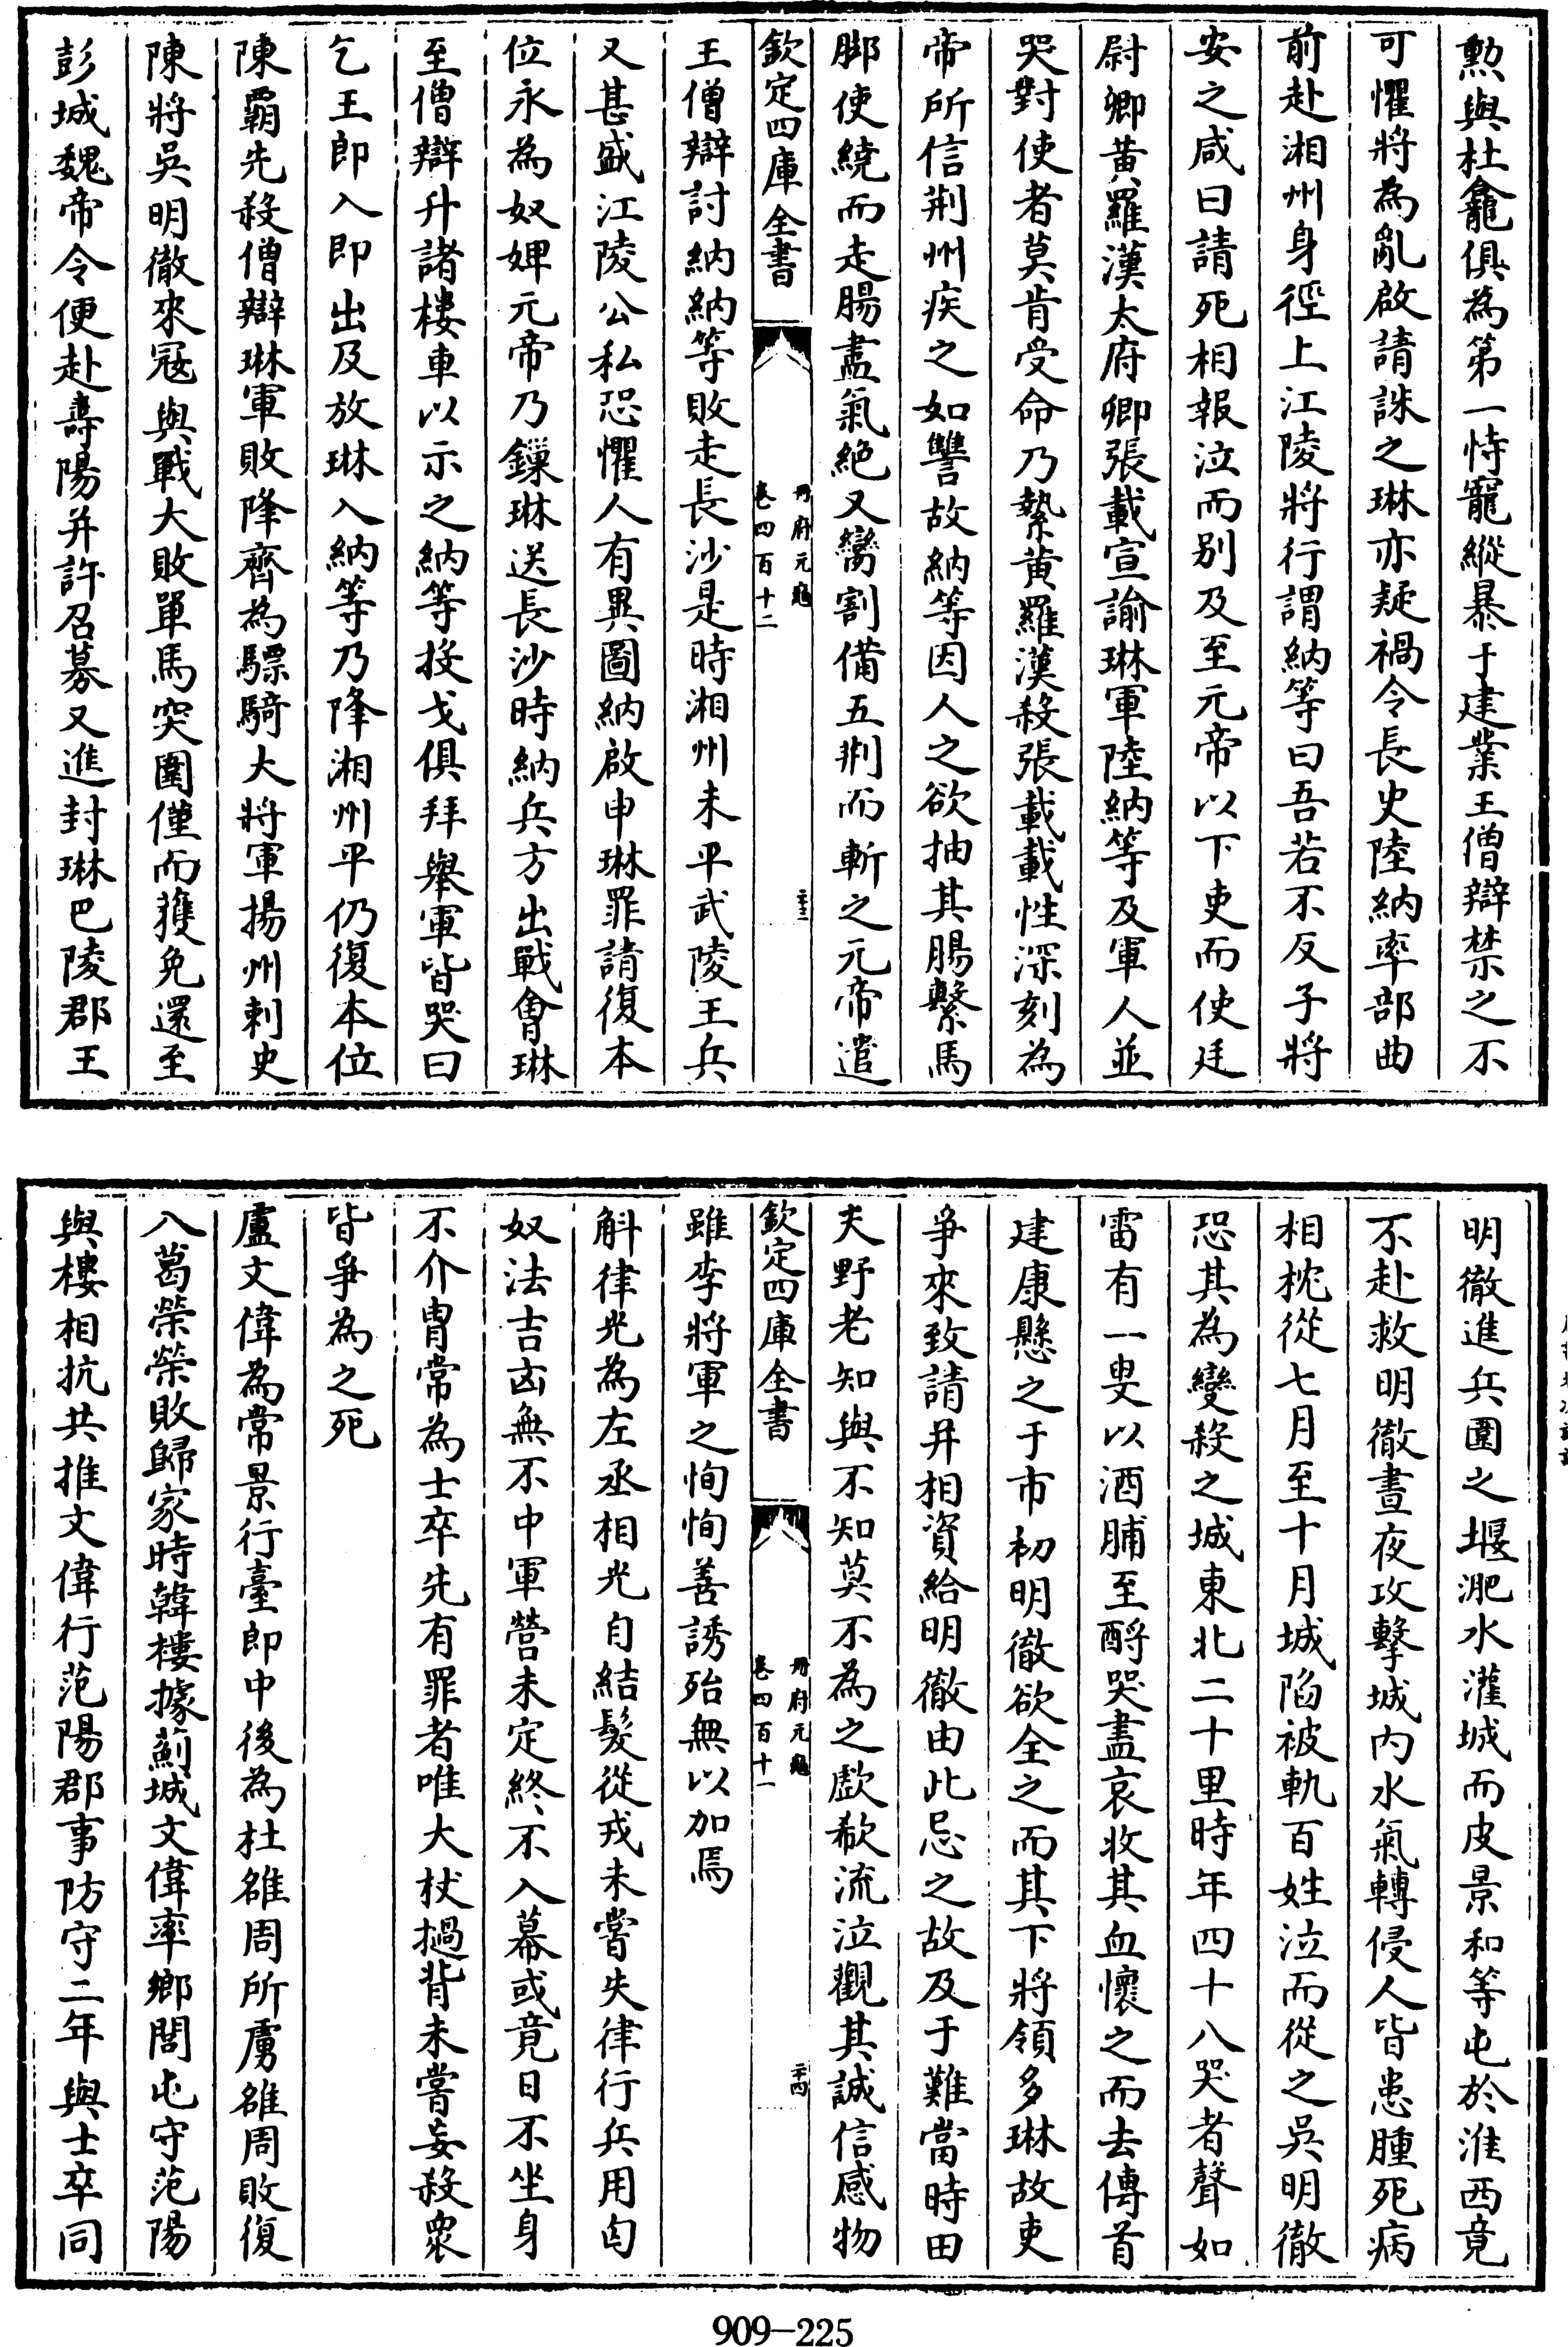 勲與杜龕俱為第一恃寵縱暴于建業王僧辯禁之不
可懼將為亂啟請誅之琳亦疑禍令長史陸納率部曲
前赴湘州身徑上江陵將行謂納等曰吾若不反子將
安之咸曰請死相報泣而别及至元帝以下吏而使廷
尉卿黄羅漢太府卿張載宣諭琳軍陸納等及軍人並
哭對使者莫肯受命乃縶黄羅漢殺張載載性深刻為
帝所信荆州疾之如讐故納等因人之欲抽其腸繫馬
脚使繞而走腸盡氣絶又臠割備五刑而斬之元帝遣
欽定四庫全書
冊府元龜
卷四百十二
二十三
王僧辯討納納等敗走長沙是時湘州未平武陵王兵
又甚盛江陵公私恐懼人有異圖納啟申琳罪請復本
位永為奴婢元帝乃鏁琳送長沙時納兵方出戰會琳
至僧辯升諸樓車以示之納等投戈俱拜舉軍皆哭曰
乞王即入即出及放琳入納等乃降湘州平仍復本位
陳霸先殺僧辯琳軍敗降齊為驃騎大將軍揚州刺史
陳將吳明徹來冦與戰大敗單馬突圍僅而獲免還至
彭城魏帝令便赴壽陽并許召募又進封琳巴陵郡王
明徹進兵圍之堰淝水灌城而皮景和等屯於淮西竟
不赴救明徹晝夜攻擊城内水氣轉侵人皆患腫死病
相枕從七月至十月城陷被軌百姓泣而從之吳明徹
恐其為變殺之城東北二十里時年四十八哭者聲如
雷有一叟以酒脯至酹哭盡哀收其血懷之而去傳首
建康懸之于市初明徹欲全之而其下將領多琳故吏
爭來致請并相資給明徹由此忌之故及于難當時田
夫野老知與不知莫不為之歔欷流泣觀其誠信感物
欽定四庫全書
冊府元龜
卷四百十一
二十四
雖李將軍之恂恂善誘殆無以加焉
斛律光為左丞相光自結髮從戎未嘗失律行兵用匈
奴法吉凶無不中軍營未定終不入幕或竟日不坐身
不介胄常為士卒先有罪者唯大杖撾背未嘗妄殺衆
皆爭為之死
盧文偉為常景行臺郎中後為杜雒周所虜雒周敗復
入葛榮榮敗歸家時韓樓據薊城文偉率鄉閭屯守范陽
與樓相抗共推文偉行范陽郡事防守二年與士卒同
909-225